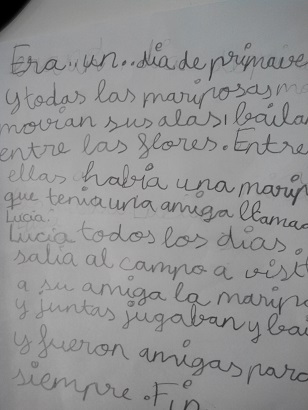 Era..un..dia de primave
y todas las mariposas mo
movian sus alas i bailan
entre las flores. Entre
ellas habia una marip
que tenia una amiga llamad
Lucia.
Lucia todos los dias
salia al campo a visit
a su amiga la maripo
y juntas jugaban y bai
y fueron amigas para
siempre. Fin